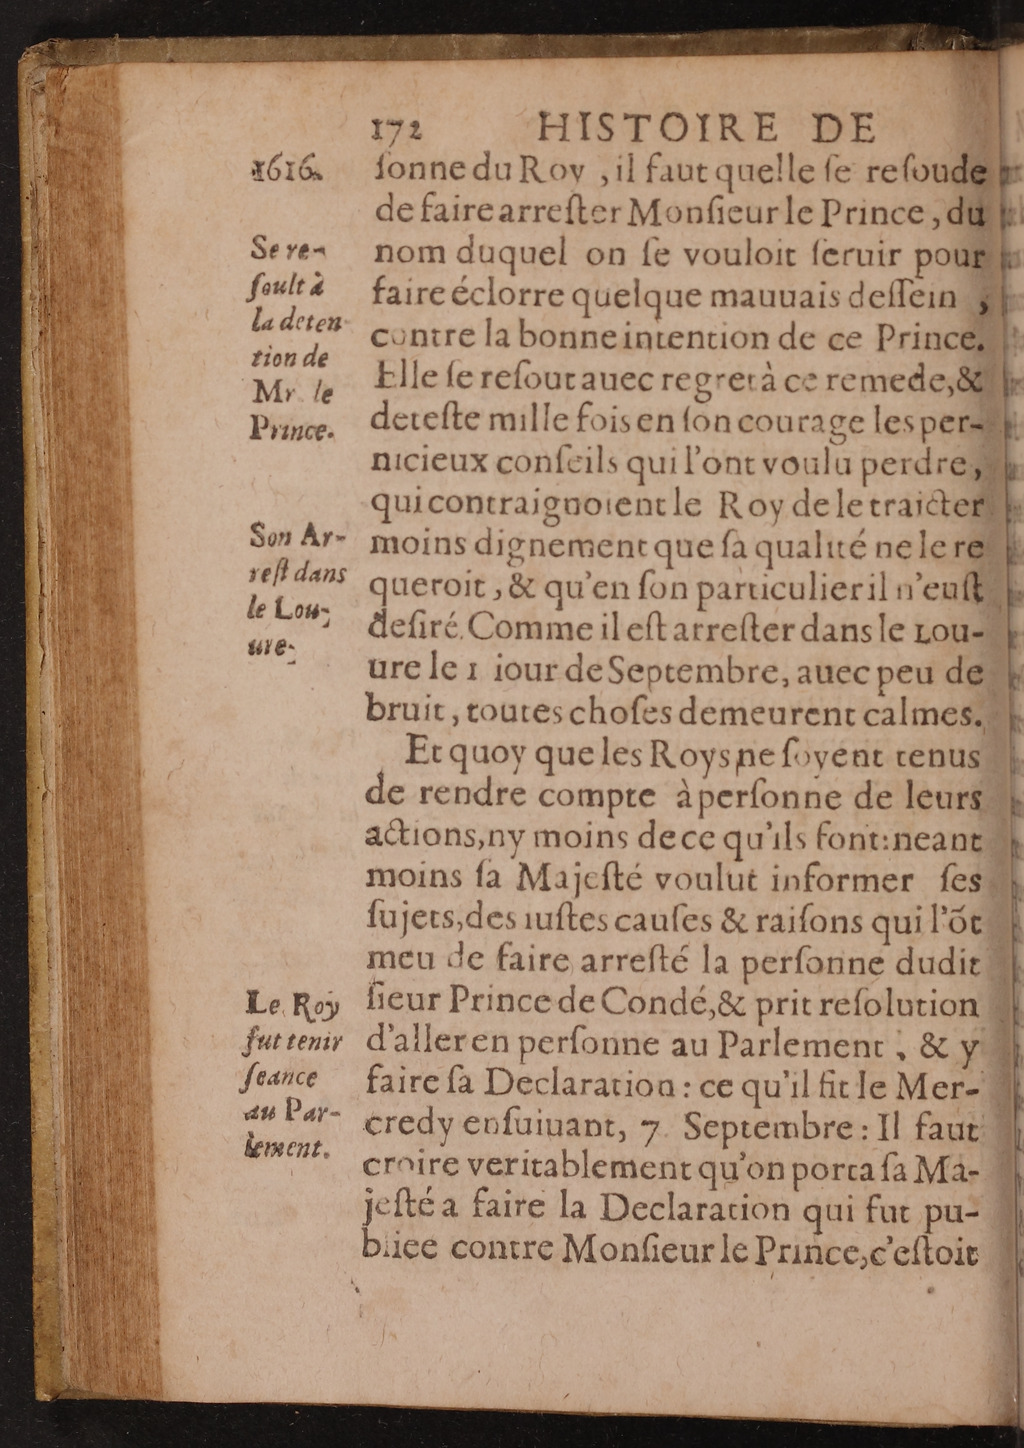 172 HISTOIRE DE
1616.
ſonne du Roy , il faut quelle ſe reſoude
de faire arreſter Monſieur le Prince , du
nom duquel on ſe vouloit ſeruir pour
faire éclorre quelque mauuais deſſein ;
contre la bonne intention de ce Prince.
Elle ſe reſout auec regret à ce remede, &
deteſte mille fois en ſon courage les per-
nicieux conſeils qui l'ont voulu perdre,
qui contraignoient le Roy de le traicter
moins dignement que ſa qualité ne le re
queroit , & qu'en ſon particulier il n'euſt
deſiré. Comme il eſt arreſter dans le Lou-
ure le 1 iour de Septembre, auec peu de
bruit , toutes choſes demeurent calmes.
Et quoy que les Roys ne ſoyent tenus
de rendre compte à perſonne de leurs
actions, ny moins de ce qu'ils font: neant
moins ſa Majeſté voulut informer ſes
ſujets, des iuſtes cauſes & raiſons qui l'õt
meu de faire arreſté la perſonne dudit
ſieur Prince de Condé, & prit reſolution
d'aller en perſonne au Parlement , & y
faire ſa Declaration : ce qu'il fit le Mer-
credy enſuiuant, 7. Septembre : Il faut
croire veritablement qu'on porta ſa Ma-
jeſté a faire la Declaration qui fut pu-
bliee contre Monſieur le Prince, c'eſtoit
Se re-
ſoult à
la deten
tion de
Mr. le
Prince.
Son Ar-
reſt dans
le Lou-
ure.
Le Roy
fut tenir
ſeance
au Par-
lement.